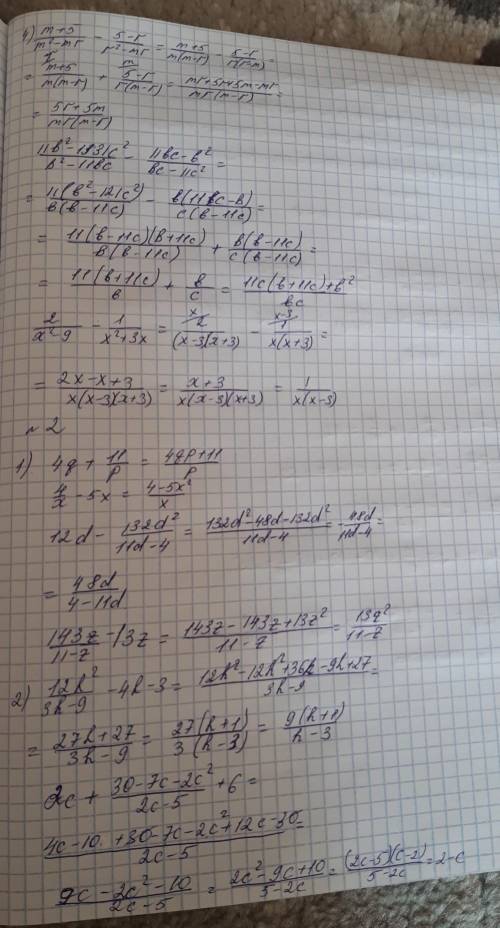 4) (m+5)/(m²-mr) - (5-r)/(r²-mr) = (m+5)/(m(m-r)) - (5-r)/(r(r-m)) =
= (m+5)/(m(m-r)) + (5-r)/(r(m-r)) = (mr+5r+5m-mr)/(mr(m-r)) =
= (5r+5m)/(mr(m-r))
(11b²-1331c²)/(b²-11bc) - (11bc-b²)/(bc-11c²) =
= 11(b²-121c²)/(b(b-11c)) - b(11c-b)/(c(b-11c)) =
= 11(b-11c)(b+11c)/(b(b-11c)) + b(b-11c)/(c(b-11c)) =
= 11(b+11c)/b + b/c = (11c(b+11c)+b²)/(bc)
2/(x²-9) - 1/(x²+3x) = x/ 2/((x-3)(x+3)) - x-3/ 1/(x(x+3)) =
= (2x-x+3)/(x(x-3)(x+3)) = (x+3)/(x(x-3)(x+3)) = 1/(x(x-3))
№2
1) 4q + 11/p = (4qp+11)/p
4/x - 5x = (4-5x²)/x
12d - 132d²/(11d-4) = (132d²-48d-132d²)/(11d-4) = -48d/(11d-4) =
= 48d/(4-11d)
143z/(11-z) - 13z = (143z-143z+13z²)/(11-z) = 13z²/(11-z)
2) 12h²/(3h-9) - 4h-3 = (12h²-12h²+36h-9h+27)/(3h-9) =
= (27h+27)/(3h-9) = 27(h+1)/(3(h-3)) = 9(h+1)/(h-3)
2c + (30-7c-2c²)/(2c-5) + 6 =
(4c-10+30-7c-2c²+12c-30)/(2c-5) =
(9c-2c²-10)/(2c-5) = (2c²-9c+10)/(5-2c) = (2c-5)(c-2)/(5-2c) = 2-c